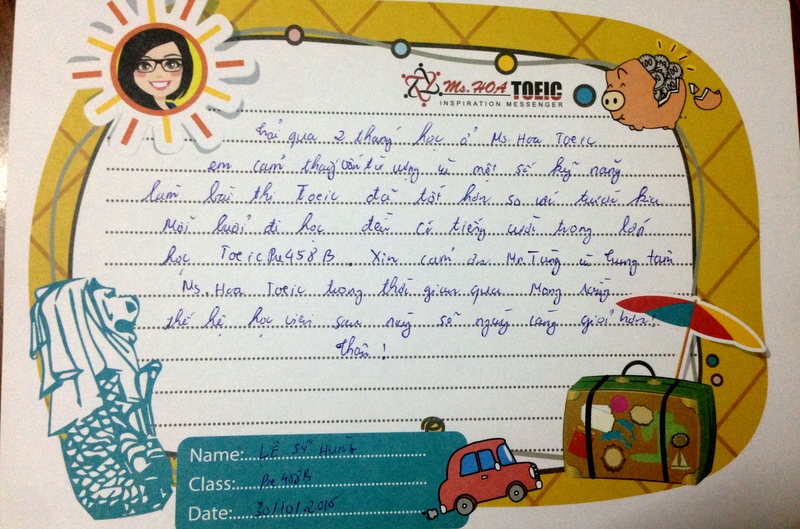 Ms. HOA TOEIC
INSPIRATION MESSENGER
Trải qua 2 tháng học ở Ms. Hoa Toeic
em cảm thấy vốn từ vựng và một số kỹ năng
làm bài thi Toeic đã tốt hơn so với trước kia
Mỗi buổi đi học đều có tiếng cười trong lớp
học Toeic Pre458B. Xin cảm ơn Mr. Tùng và trung tâm
Ms. Hoa Toeic trong thời gian qua Mong rằng
thế hệ học viên sau này sẽ ngày càng giỏi hơn!
Thân!
Name: LÊ SỸ HÙNG
Class: Pre 458B
Date: 30/10/2015